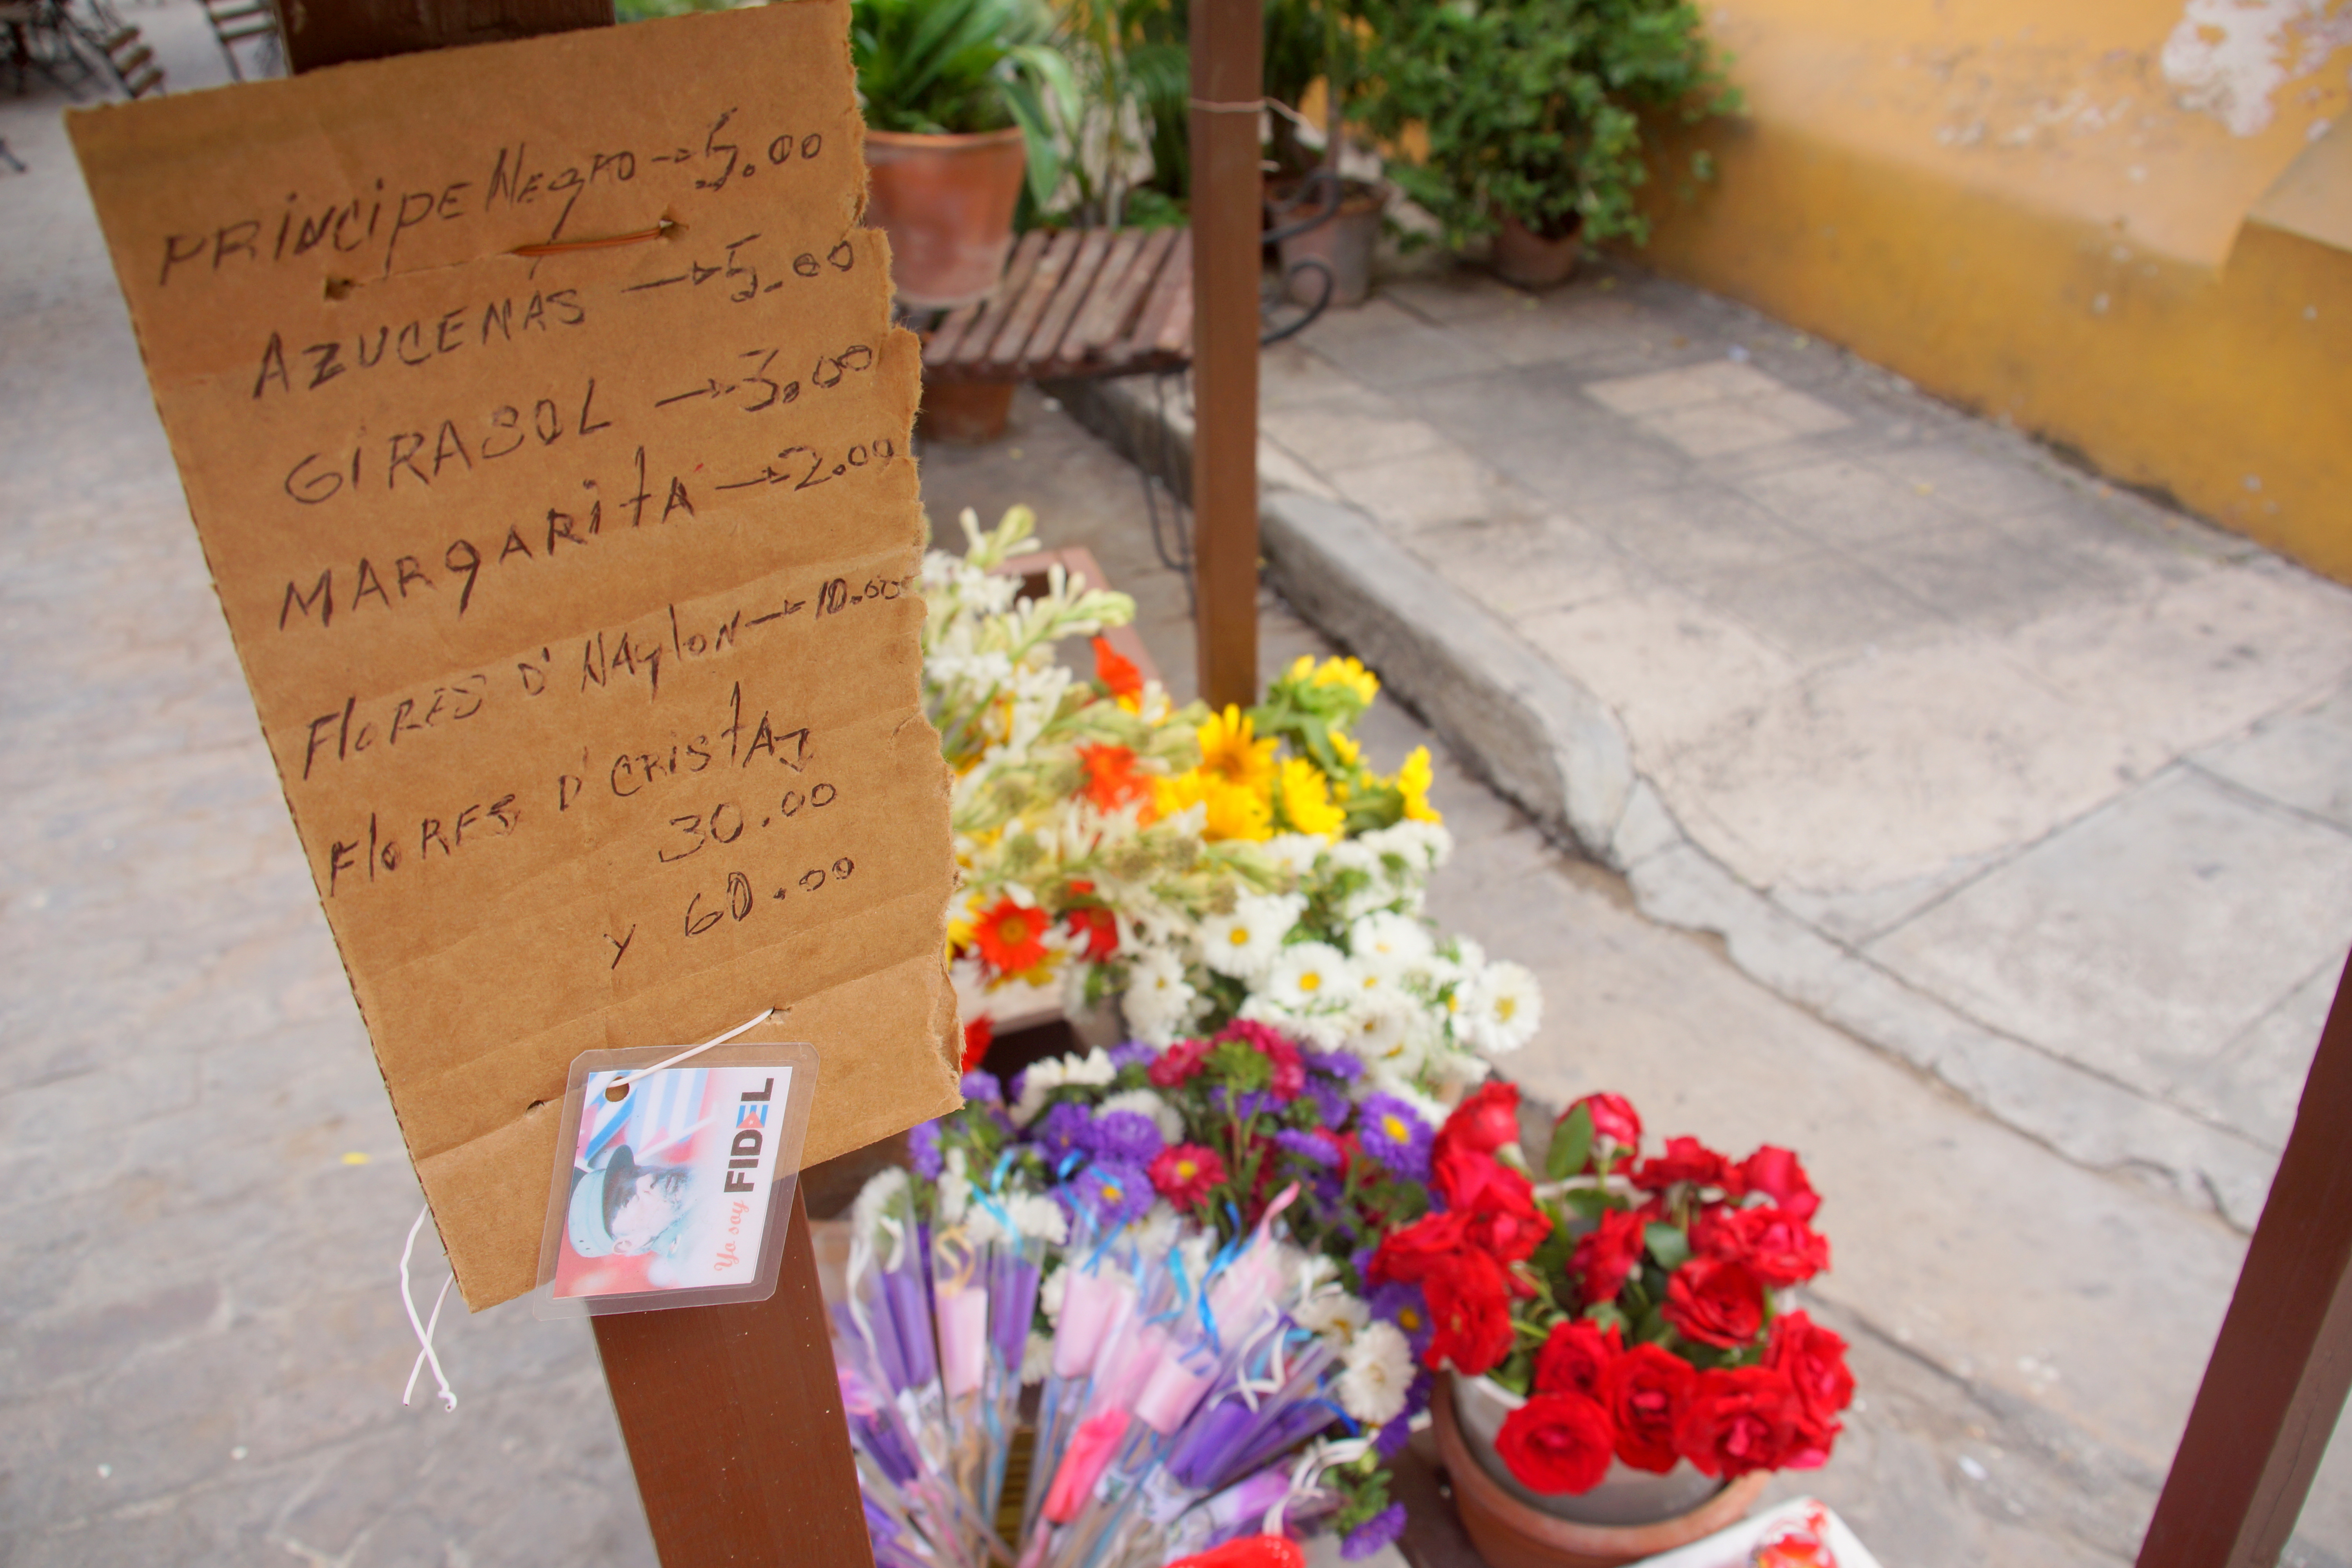 PRÍNCIPE NEGRO → 5.00
AZUCENAS → 5.00
GIRASOL → 3.00
MARGARITA → 2.00
FLORES D' NAYLON → 10.00
FLORES D' CRISTAL
30.00
y 60.00
Yo soy FIDEL